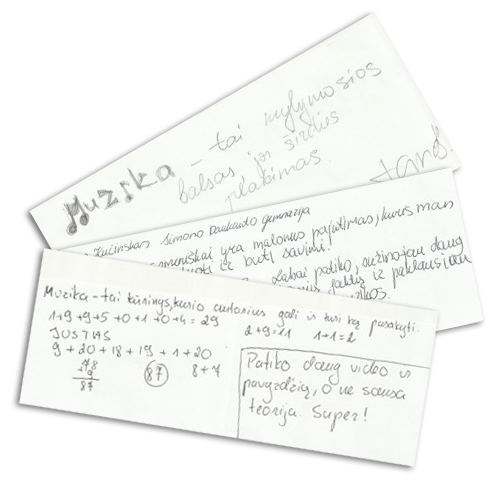 Muzika - tai mylimosios
balsas ir širdies
plakimas.
Simono Daukanto gimnazija
yra malonus pajutimas, kuris man
būti savimi!
Labai patiko, sužinojau daug
faktų iš paklausiau
Muzika - tai kūrinys, kurio autorius gali ir turi ką pasakyti.
1+9+9+5+0+1+0+4=29 2+9=11 1+1=2
JUSTAS
9+20+18+19+1+20
78
+9
87
87 8+7
Patiko daug video ir
pavyzdžių, o ne sausa
teorija. Super!